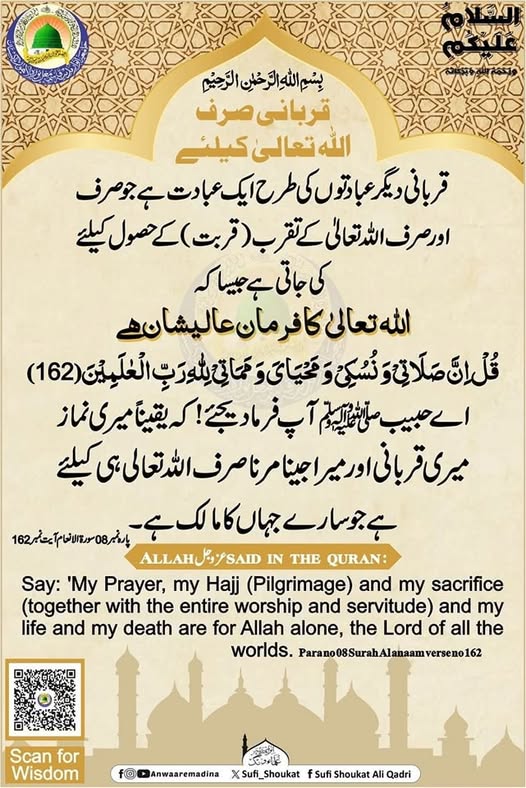 السَّلامُ
عَلَيْكُم
ورحمة الله وبركاته
بِسْمِ اللهِ الرَّحْمٰنِ الرَّحِيْمِ
قربانی صرف
اللہ تعالیٰ کیلئے
قربانی دیگر عبادتوں کی طرح ایک عبادت ہے جو صرف
اور صرف اللہ تعالیٰ کے تقرب (قربت) کے حصول کیلئے
کی جاتی ہے جیسا کہ
اللہ تعالیٰ کا فرمان عالیشان ہے
قُلْ اِنَّ صَلَاتِیْ وَ نُسُكِیْ وَ مَحْیَایَ وَ مَمَاتِیْ لِلّٰهِ رَبِّ الْعٰلَمِیْنَ (162)
اے حبیب ﷺ آپ فرما دیجئے! کہ یقیناً میری نماز
میری قربانی اور میرا جینا مرنا صرف اللہ تعالی ہی کیلئے
ہے جو سارے جہاں کا مالک ہے۔
پارہ نمبر 08 سورۃ الانعام آیت نمبر 162
ALLAH عزوجل SAID IN THE QURAN:
Say: 'My Prayer, my Hajj (Pilgrimage) and my sacrifice
(together with the entire worship and servitude) and my
life and my death are for Allah alone, the Lord of all the
worlds. Para no 08 Surah Al anaam verse no 162
Scan for
Wisdom
Anwaaremadina Sufi_Shoukat Sufi Shoukat Ali Qadri